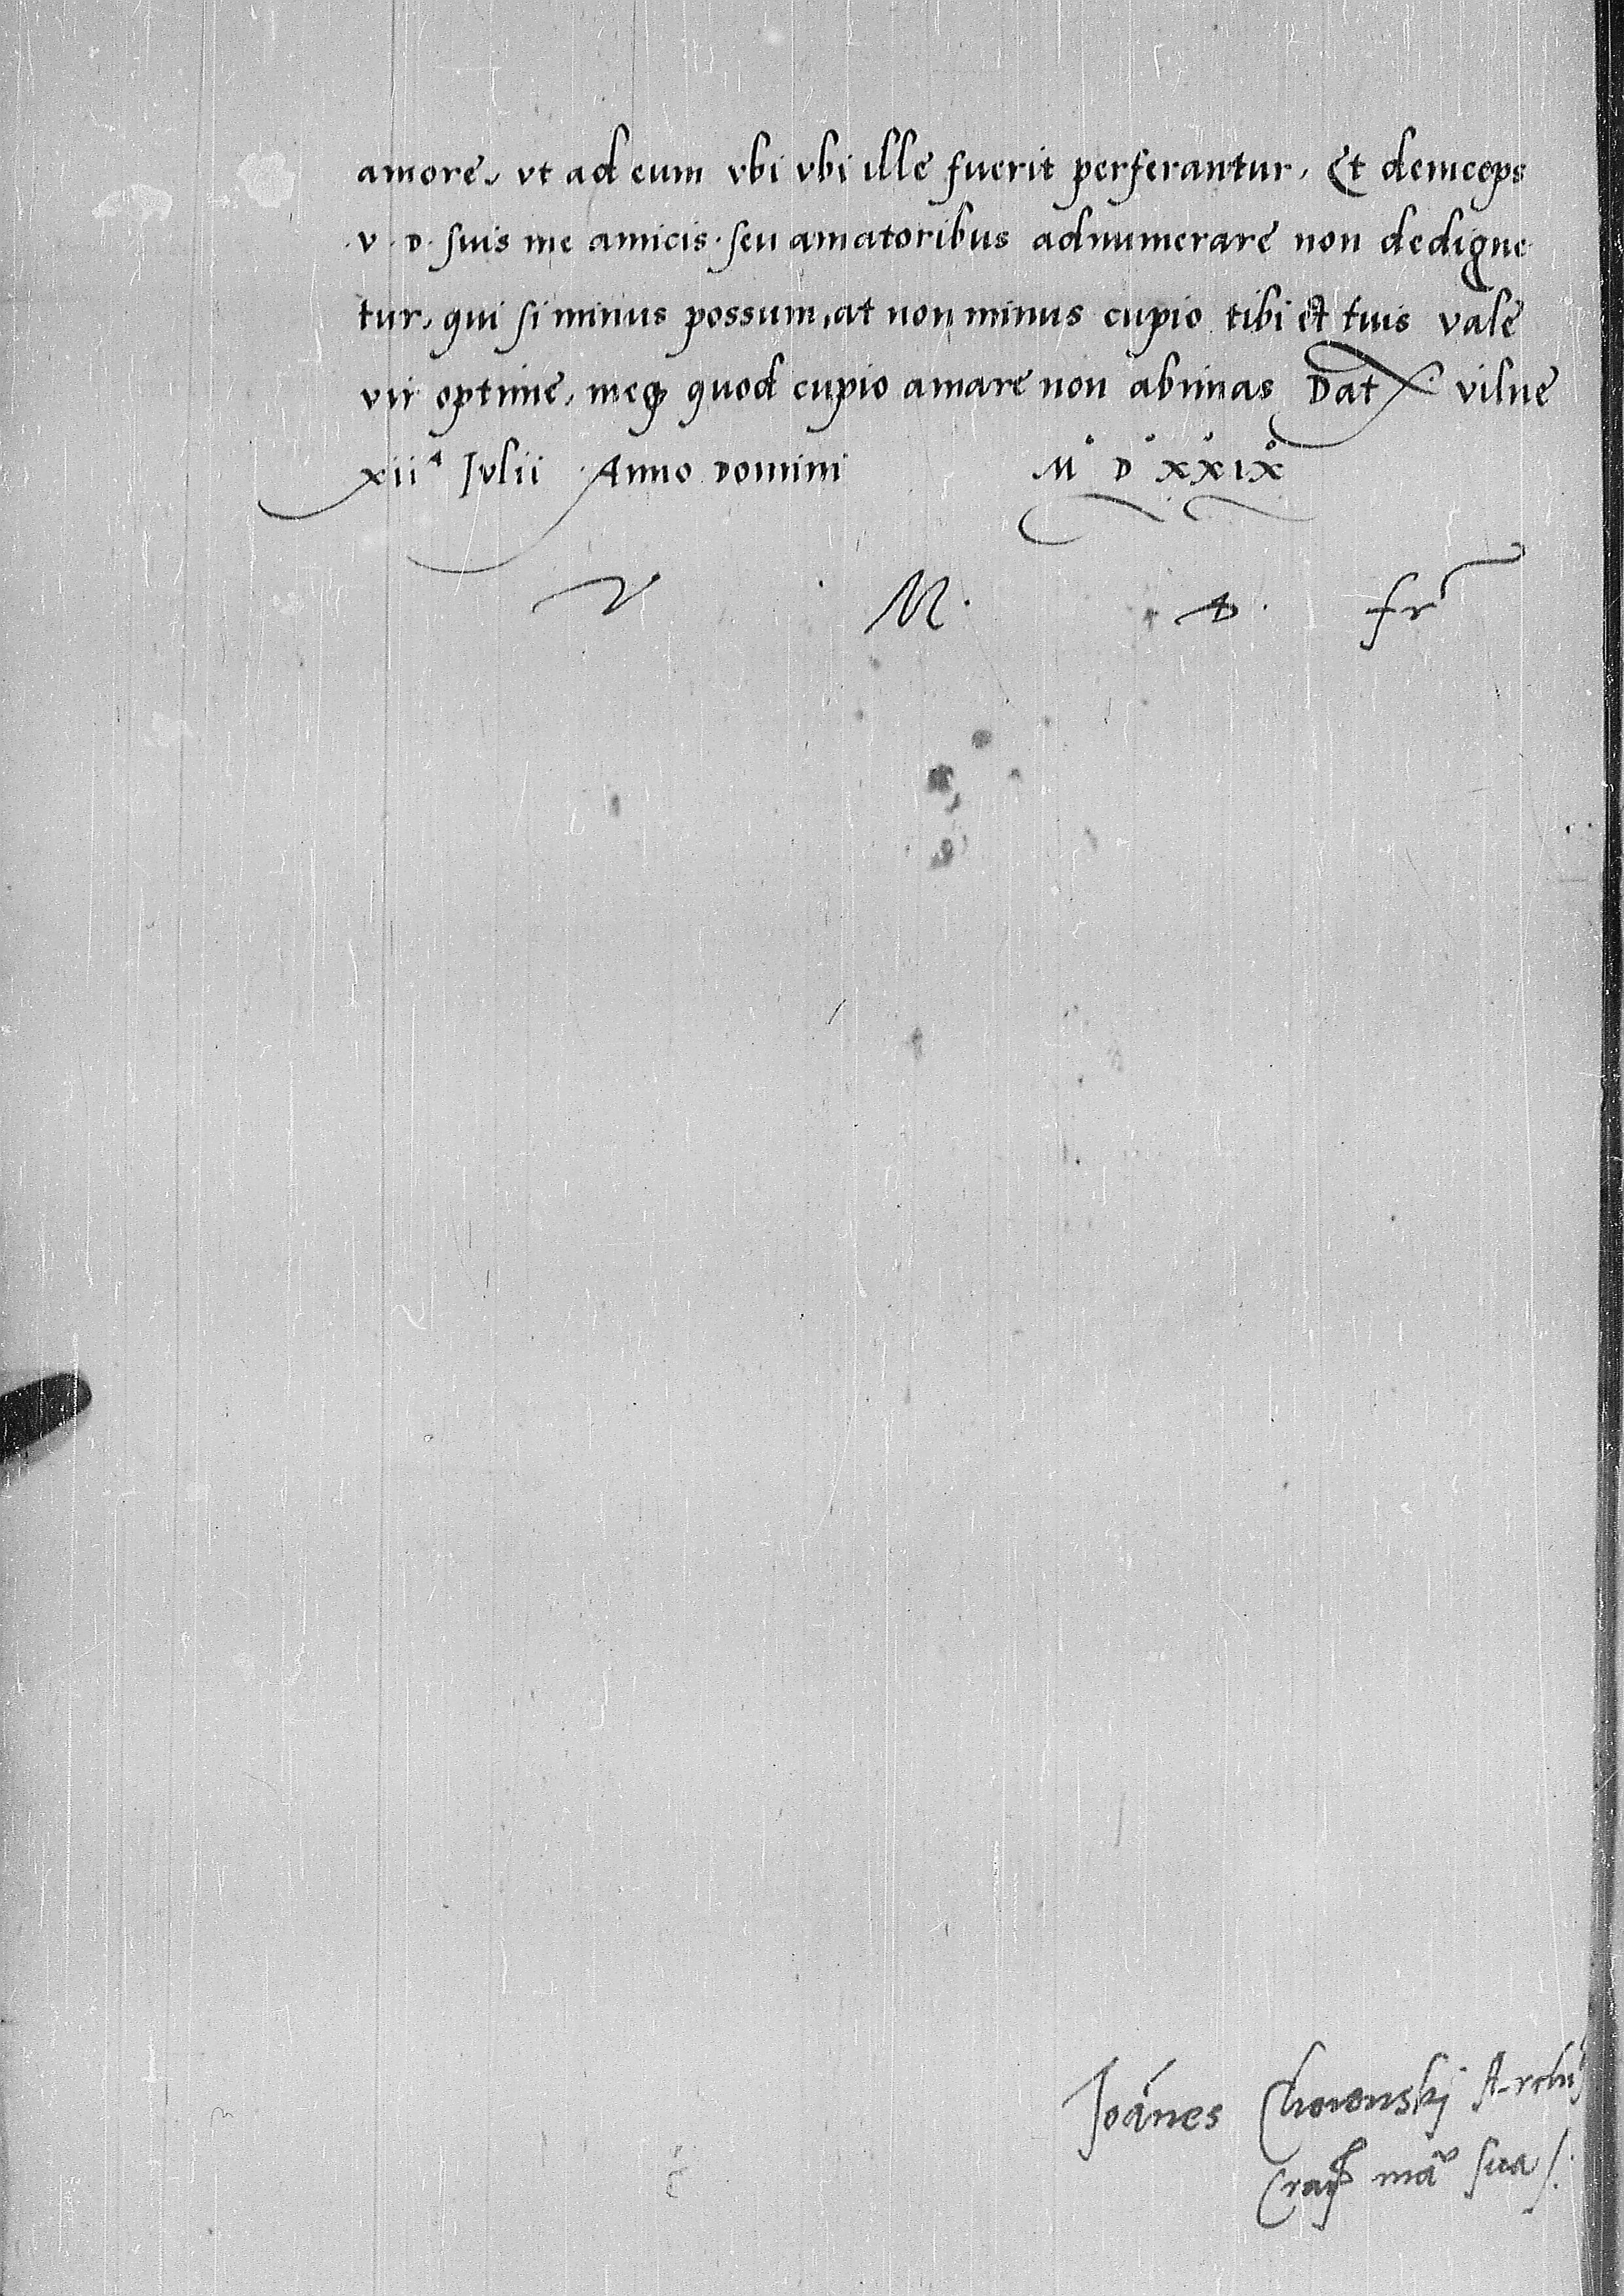 amore, vt ad eum vbi vbi ille fuerit perferantur, Et deinceps
v. D. suis me amicis. seu amatoribus adnumerare non dedigne
tur, qui si minus possum, at non minus cupio tibi et tuis vale
vir optime, meq quod cupio amare non abnuas Dat vilne
xiia Iulii Anno Domini Mo Do xxoixo
V M. D. fr
Joānes Choienskj Archi
Cracō māu sua